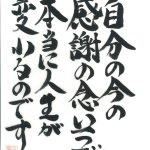 自分の今の
感謝の念いで
本当に人生が
変わるのです